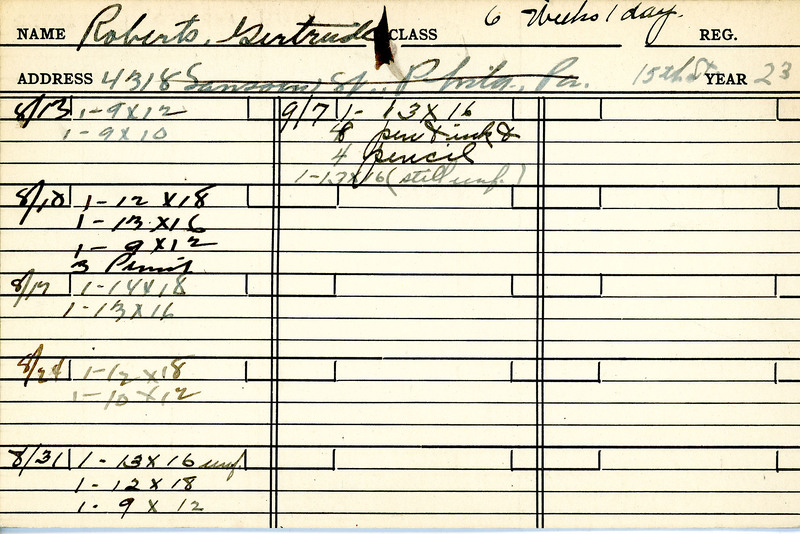 NAME Roberts, Gertrude CLASS 6 Weeks 1 day. REG.
ADDRESS 4318 Sansom St., Phila., Pa. 15th St YEAR 23
8/13 1-9x12
1-9x10
8/10 1-12x18
1-13x16
1-9x12
3
8/17 1-14x18
1-13x16
8/24 1-12x18
1-10x12
8/31 1-13x16 unf.
1-12x18
1-9x12
9/7 1-13x16
8 pen & ink &
4 pencil
1-13x16 (still unf.)